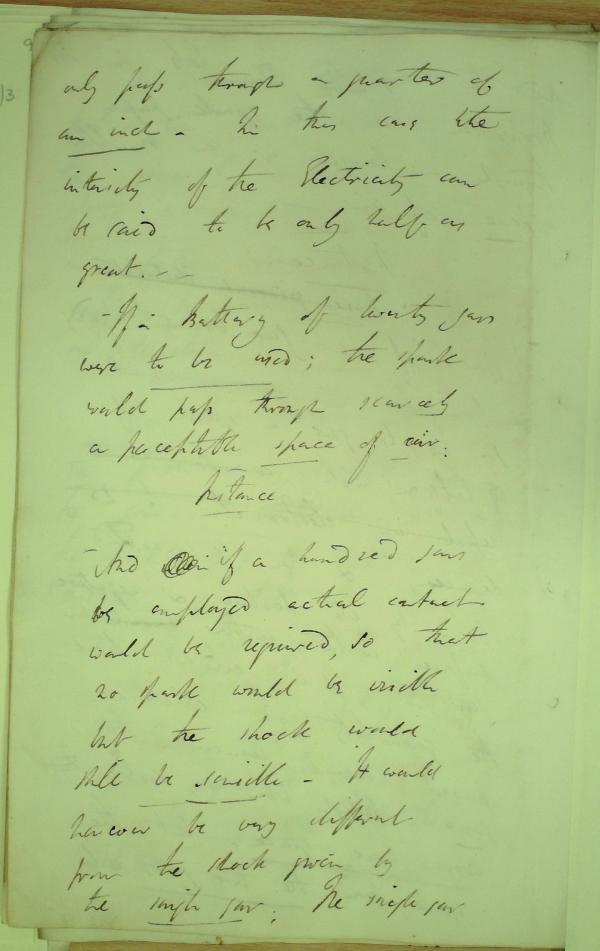 only pass through a quarter of
an inch - In this case the
intensity of the Electricity can
be said to be only half as
great. - -
- If a Battery of twenty jars
were to be used; the spark
would pass through scarcely
a perceptible space of air:
Instance
- And if a hundred jars
be employed actual contact
would be required, so that
no spark would be visible
but the shock would
still be sensible - It would
however be very different
from the shock given by
the single jar; The single jar